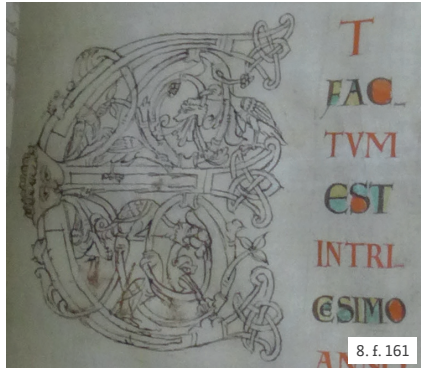 T
FAC
TVM
EST
INTRI
CESIMO
ANNO
8. f. 161